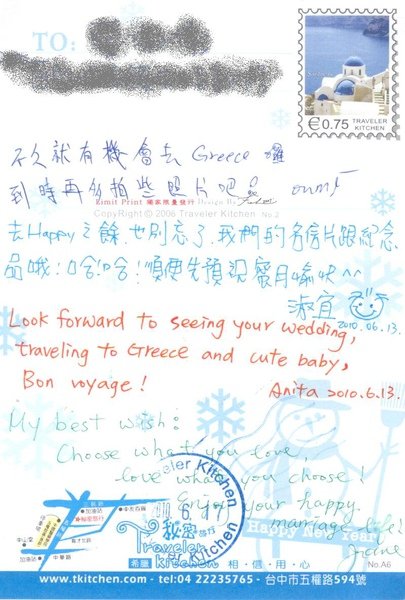 TO:
€0.75 TRAVELER
KITCHEN
不久就有機會去 Greece 囉
到時再多拍些照片吧
Limit Print 獨家限量發行 Design By
CopyRight © 2006 Traveler Kitchen No.2
去Happy之餘,也別忘了,我們的名信片跟紀念
品哦!哈哈!順便先預祝蜜月愉快^^
淑宜 2010.06.13.
Look forward to seeing your wedding,
traveling to Greece and cute baby,
Bon voyage!
Anita 2010.6.13.
My best wish:
Choose what you love,
love what you choose!
Enjoy your happy
marriage life!
Traveler Kitchen
旅行
Traveler
Kitchen
希臘
Happy New Year
相・信・用・心
No.A6
www.tkitchen.com - tel:04 22235765 - 台中市五權路594號